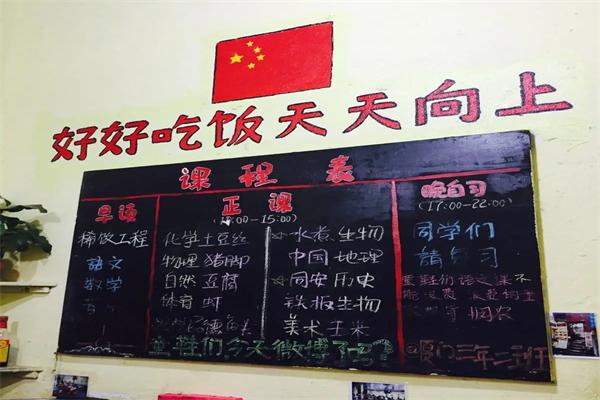 好好吃饭天天向上
课程表
早读
稀饭工程
语文
数学
正课
00-15:00)
化学土豆丝
物理猪脚
自然豆腐
体育虾
水煮生物
中国地理
同安历史
铁板生物
美术玉米
晚自习
(17:00-22:00)
同学们
請自习
亚鞋们今天微博了吗?
厦门三年二班